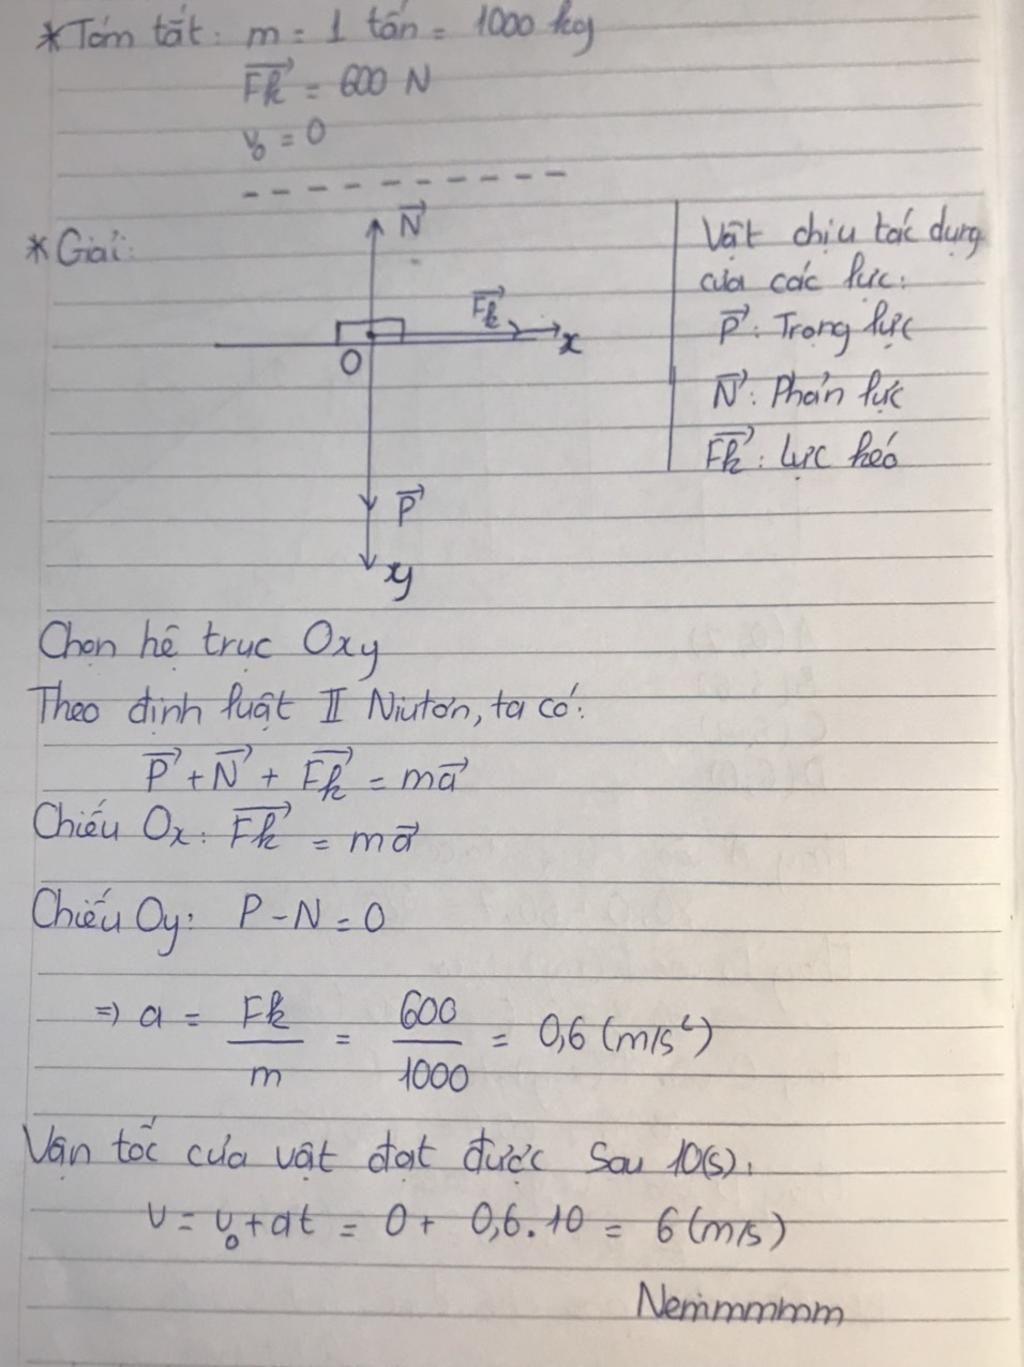 *Tóm tắt: m = 1 tấn = 1000 kg
F⃗k = 600 N
v₀ = 0
*Giải:
N⃗
F⃗k
x
O
P⃗
y
Vật chịu tác dụng
của các lực:
P⃗: Trọng lực
N⃗: Phản lực
F⃗k: Lực kéo
Chọn hệ trục Oxy
Theo định luật II Niutơn, ta có:
P⃗ + N⃗ + F⃗k = ma⃗
Chiếu Ox: F⃗k = ma⃗
Chiếu Oy: P - N = 0
=> a = Fk/m = 600/1000 = 0,6 (m/s²)
Vận tốc của vật đạt được sau 10(s):
v = v₀ + at = 0 + 0,6.10 = 6 (m/s)
Nemmmmm